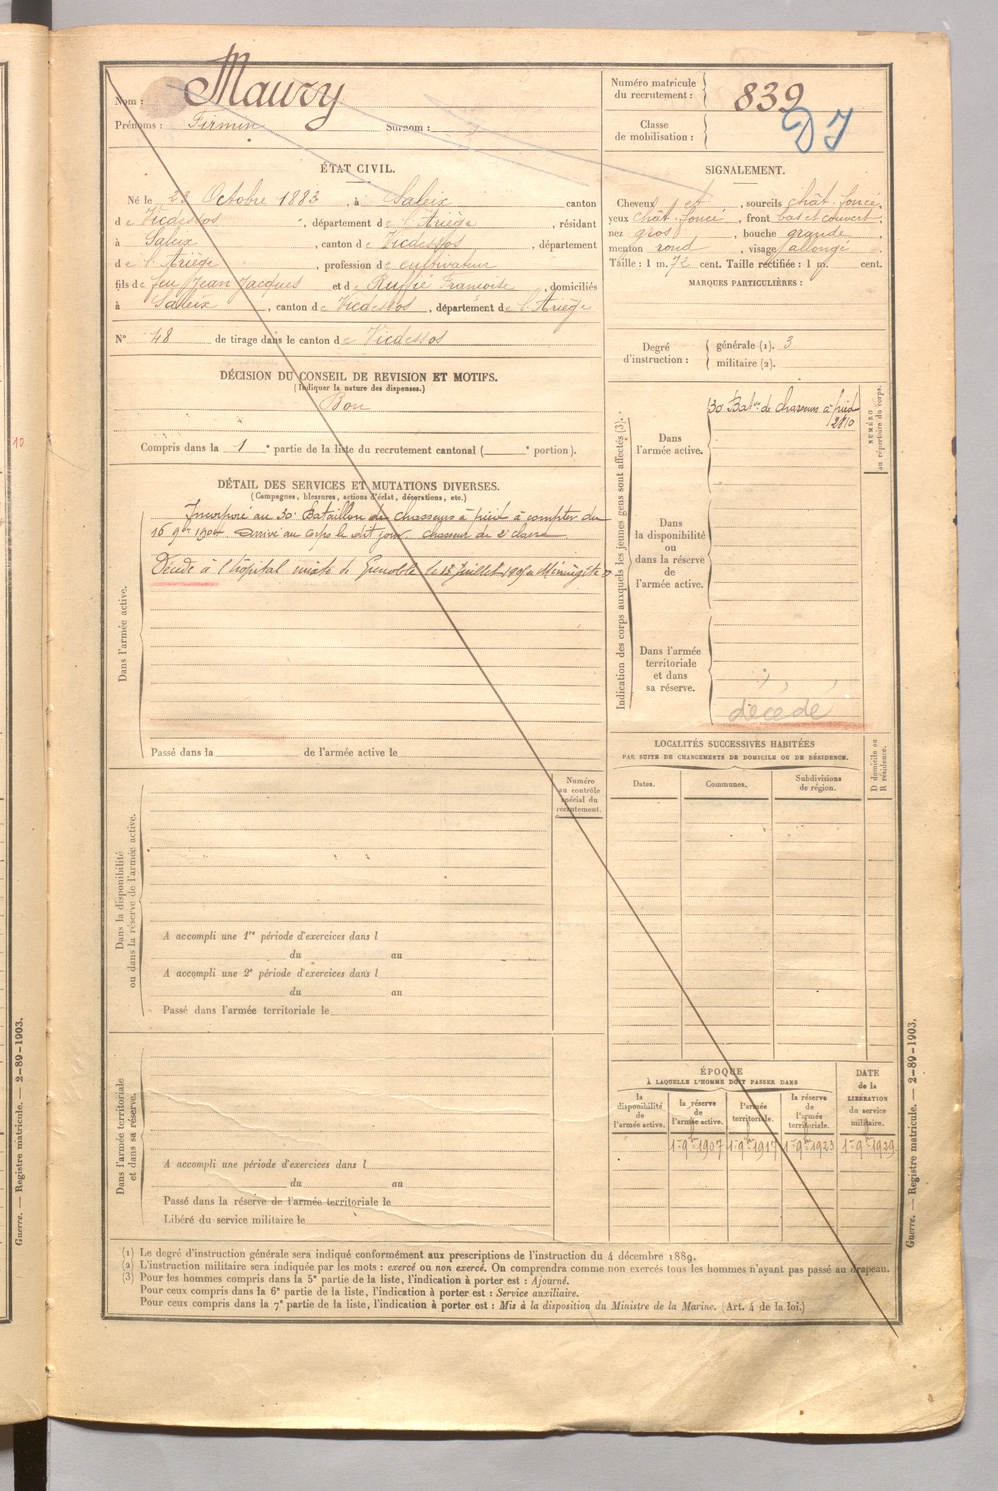 Nom : Maury
Prénoms : Firmin Surnom :
Numéro matricule du recrutement : 839
Classe de mobilisation :
ÉTAT CIVIL.
Né le 28 Octobre 1883, à Saleix canton
de Vicdessos, département de l'Ariège, résidant
à Saleix, canton de Vicdessos, département
de l'Ariège, profession de cultivateur
fils de feu Jean Jacques et de Françoise, domiciliés
à Saleix, canton de Vicdessos, département de l'Ariège
N° 48 de tirage dans le canton de Vicdessos
SIGNALEMENT.
Cheveux et, sourcils chât. foncé,
yeux chât. foncé, front bas et couvert,
nez gros, bouche grande,
menton rond, visage allongé
Taille : 1 m. 72 cent. Taille rectifiée : 1 m. cent.
MARQUES PARTICULIÈRES :
Degré d'instruction : générale (1). 3
militaire (2).
DÉCISION DU CONSEIL DE REVISION ET MOTIFS.
(Indiquer la nature des dispenses.)
Bon
Compris dans la 1e partie de la liste du recrutement cantonal ( e portion).
DÉTAIL DES SERVICES ET MUTATIONS DIVERSES.
(Campagnes, blessures, actions d'éclat, décorations, etc.)
Dans l'armée active.
Incorporé au 30e Bataillon de chasseurs à pied à compter du
16 9bre 1904 arrivé au corps le dit jour. chasseur de 2e classe
Décédé à l'hôpital mixte de Grenoble le 18 Juillet Méningite
Passé dans la de l'armée active le
Indication des corps auxquels les jeunes gens sont affectés (3).
NUMÉRO au répertoire du corps.
Dans l'armée active.
30 Baton de chasseurs à pied
2810
Dans la disponibilité ou dans la réserve de l'armée active.
Dans l'armée territoriale et dans sa réserve.
décédé
LOCALITÉS SUCCESSIVES HABITÉES
PAR SUITE DE CHANGEMENTS DE DOMICILE OU DE RÉSIDENCE.
D domicile ou R résidence.
Dates. Communes. Subdivisions de région.
Numéro au contrôle spécial du recrutement.
Dans la disponibilité ou dans la réserve de l'armée active.
A accompli une 1re période d'exercices dans l
du au
A accompli une 2e période d'exercices dans l
du au
Passé dans l'armée territoriale le
Dans l'armée territoriale et dans sa réserve.
A accompli une période d'exercices dans l
du au
Passé dans la réserve de l'armée territoriale le
Libéré du service militaire le
ÉPOQUE
À LAQUELLE L'HOMME DOIT PASSER DANS
la disponibilité de l'armée active.
la réserve de l'armée active.
l'armée territoriale.
la réserve de l'armée territoriale.
DATE de la LIBÉRATION du service militaire.
1er 9bre 1907 1er 9bre 1917 1er 9bre 1923 1er 9bre 1929
(1) Le degré d'instruction générale sera indiqué conformément aux prescriptions de l'instruction du 4 décembre 1889.
(2) L'instruction militaire sera indiquée par les mots : exercé ou non exercé. On comprendra comme non exercés tous les hommes n'ayant pas passé au drapeau.
(3) Pour les hommes compris dans la 5e partie de la liste, l'indication à porter est : Ajourné.
Pour ceux compris dans la 6e partie de la liste, l'indication à porter est : Service auxiliaire.
Pour ceux compris dans la 7e partie de la liste, l'indication à porter est : Mis à la disposition du Ministre de la Marine. (Art. 4 de la loi.)
Guerre. — Registre matricule. — 2-89-1903.
Guerre. — Registre matricule. — 2-89-1903.
10